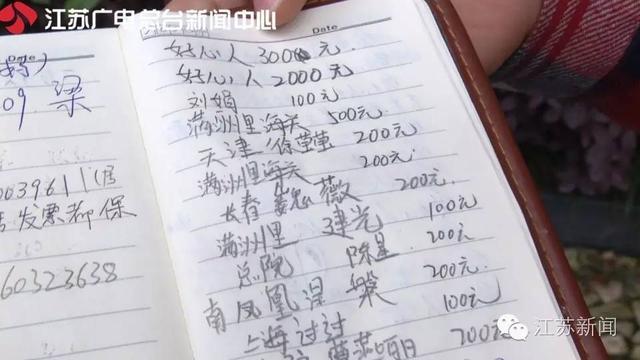 江苏广电总台新闻中心
Date
好心人 3000元
好心人 2000元
刘娟 100元
满洲里海关 500元
天津 徐莹莹 200元
满洲里海关 200元
长春 魏薇 200元
满洲里 建光 100元
总院 陈星 200元
南凤凰涅槃 200元
上海过过 100元
200元
09 梁
0039611(启
发票都保
60323638
江苏新闻